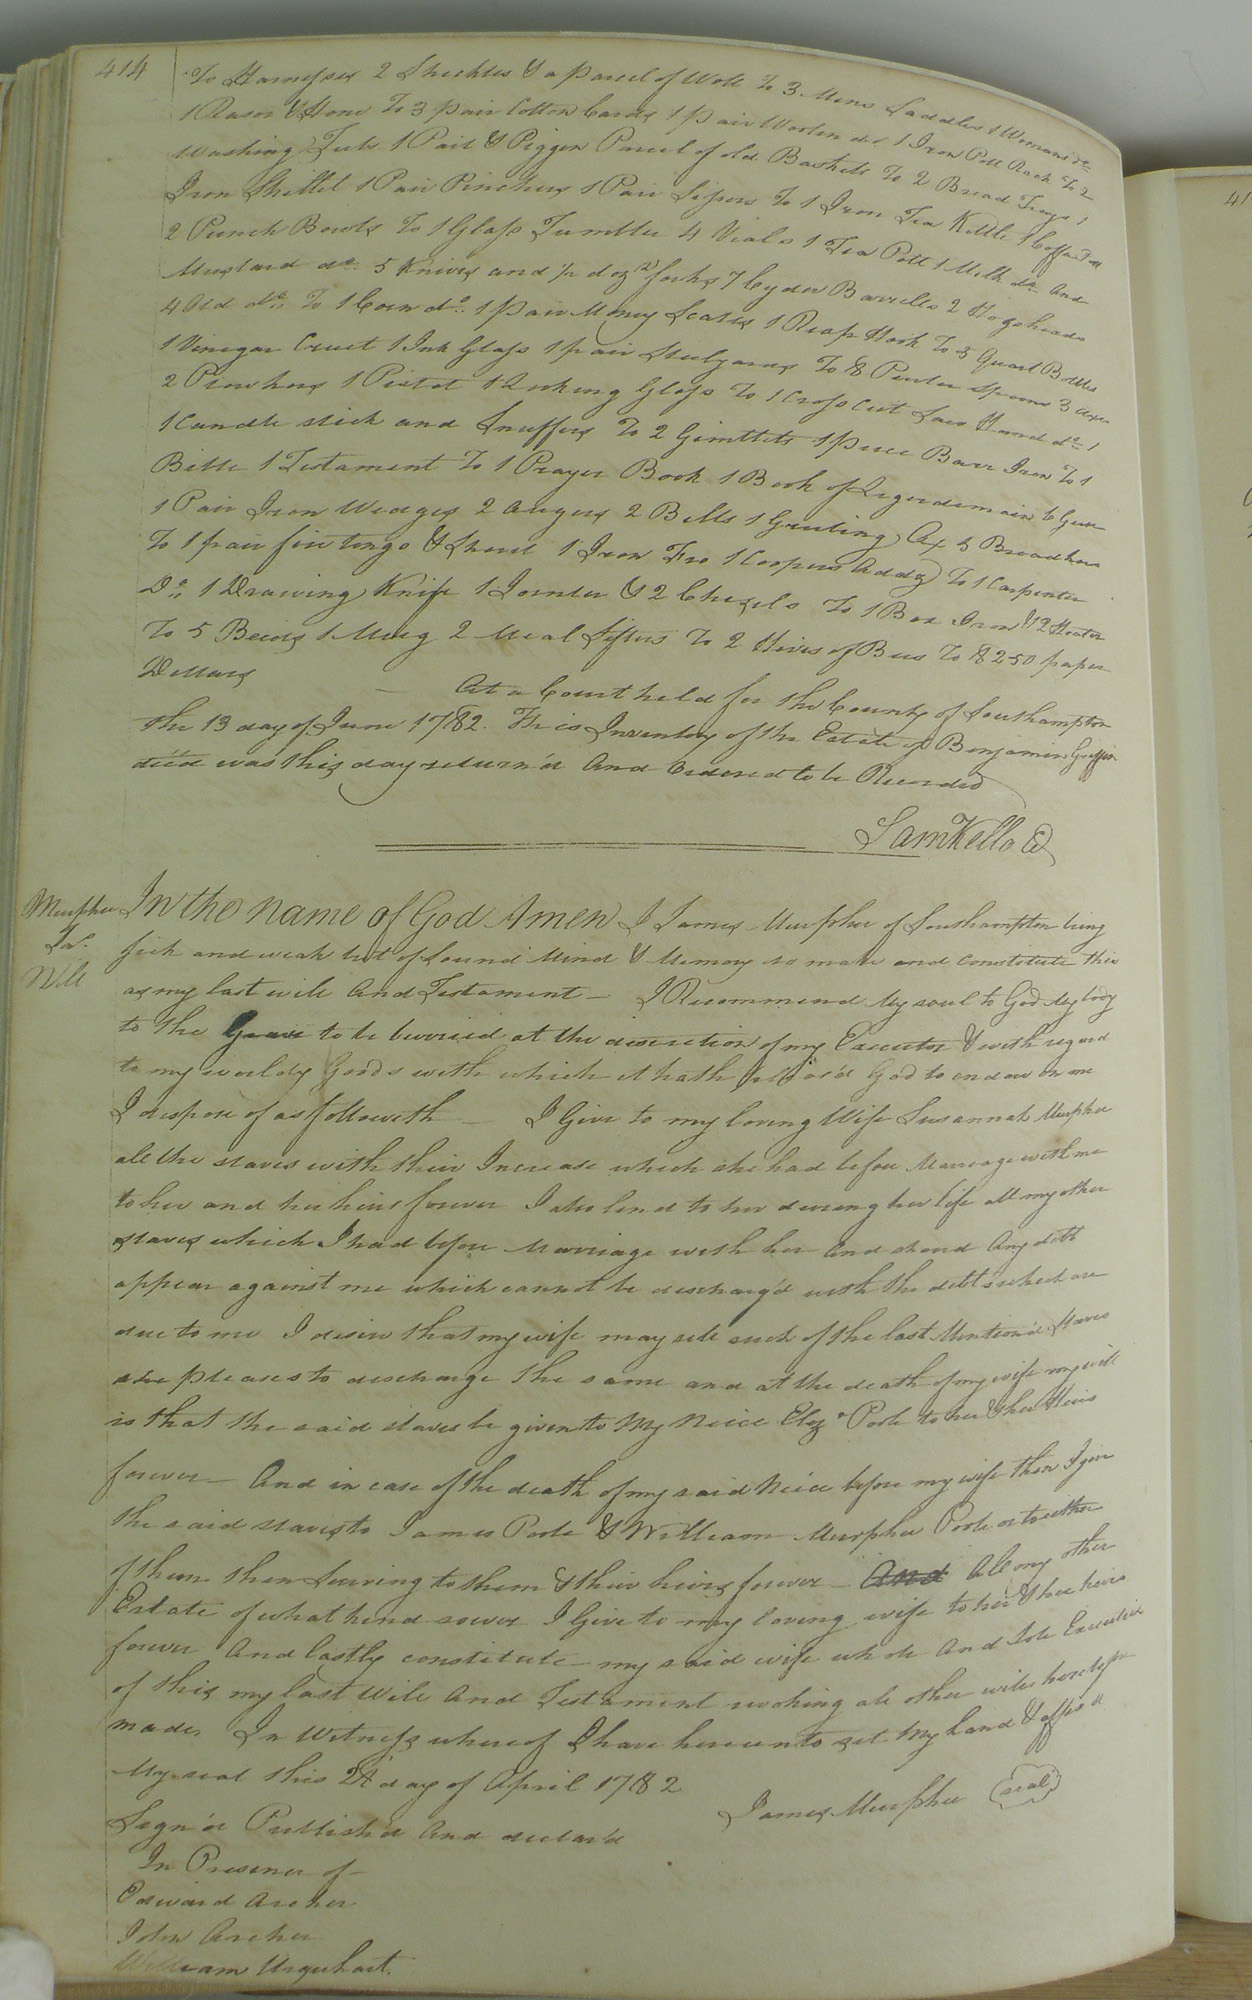 414
To Harnesses 2 Shuckles & a parcel of Wool To 3 Mens Saddles 1 Womans do
1 Rasor & Hone To 3 pair Cotton Cards 1 pair Woolen do 1 Iron Pott Rack To 2
Washing Tubs 1 Pail & Piggen Parcel of old Baskets To 2 Bread Trays 1
Iron Skillet 1 Pair Pinchers 1 Pair To 1 Iron Tea Kittle 1 Coffee Pott
2 Punch Bowls To 1 Glass Tumbler 4 Vials 1 Tea Pott 1 Milk do And
Mustard do. 5 Knives and ½ dozn forks 7 Cyder Barrells 2 Hogsheads
4 Old do. To 1 Corn do. 1 pair Money Scales 1 Reap Hook To 5 Quart Bottles
1 Vinegar Cruet 1 Ink Glass 1 pair Stilyards To 8 Pewter Spoons 3 Axes
2 Plowhoes 1 Pistol 1 Looking Glass To 1 Cross Cut Saw Hand do. 1
1 Candle stick and Snuffers To 2 Gimblets 1 piece Barr Iron To 1
Bible 1 Testament To 1 Prayer Book 1 Book of Legerdemain 6 Geese
1 Pair Iron Wedges 2 Augers 2 Bells 1 Grubing Ax 5 Broadhoes
To 1 pair fire tongs & Shovel 1 Iron Fro 1 Coopers Addz To 1 Carpenter
Do. 1 Drawing Knife 1 Jointer & 2 Chizels To 1 Box Iron & 2 Heaters
To 5 1 Mug 2 Meal Sifters To 2 Hives of Bees To 8250 paper
Dollars — At a Court held for the County of Southampton
the 13 day of June 1782. This Inventory of the Estate of Benjamin Griffin
dec'd was this day return'd And Ordered to be Recorded
Sam Kello Cl
Murphee
Jas.
Will
In the name of God Amen I James Murphee of Southampton being
sick and weak but of Sound Mind & Memory do make and constitute this
as my last will And Testament — I Recommend My soul to God My body
to the Grave to be burried at the discretion of my Executor & with regard
to my worldy Goods with which it hath pleas'd God to endow on me
I dispose of as followeth — I Give to my loving Wife Susannah Murphee
all the slaves with their Increase which she had before Marriage with me
to her and her heirs forever I also lend to her during her life all my other
slaves which I had before Marriage with her And shoud Any debt
appear against me which cannot be discharg'd with the debts which are
due to me I desire that my wife may sell such of the last Mention'd Slaves
she pleases to discharge the same and at the death of my wife my will
is that the said slaves be given to My Neice Eliza Poole to her & her Heirs
forever — And in case of the death of my said Neice before my wife then I give
the said slaves to James Poole & William Murphee Poole or to either
of them then Surviving to them & their heirs forever — And All my other
Estate of what kind soever I Give to my loving wife to her & her heirs
forever And lastly constitute my said wife whole And Sole Executrix
of this my last Will And Testament revoking all other wills heretofore
made. In Witness whereof I have hereunto set My hand & affix'd
My seal this 24 day of April 1782
James Murphee seal
Sign'd Publish'd And declar'd
In Presence of —
Edward Archer
John Archer
William Urquhart.
41